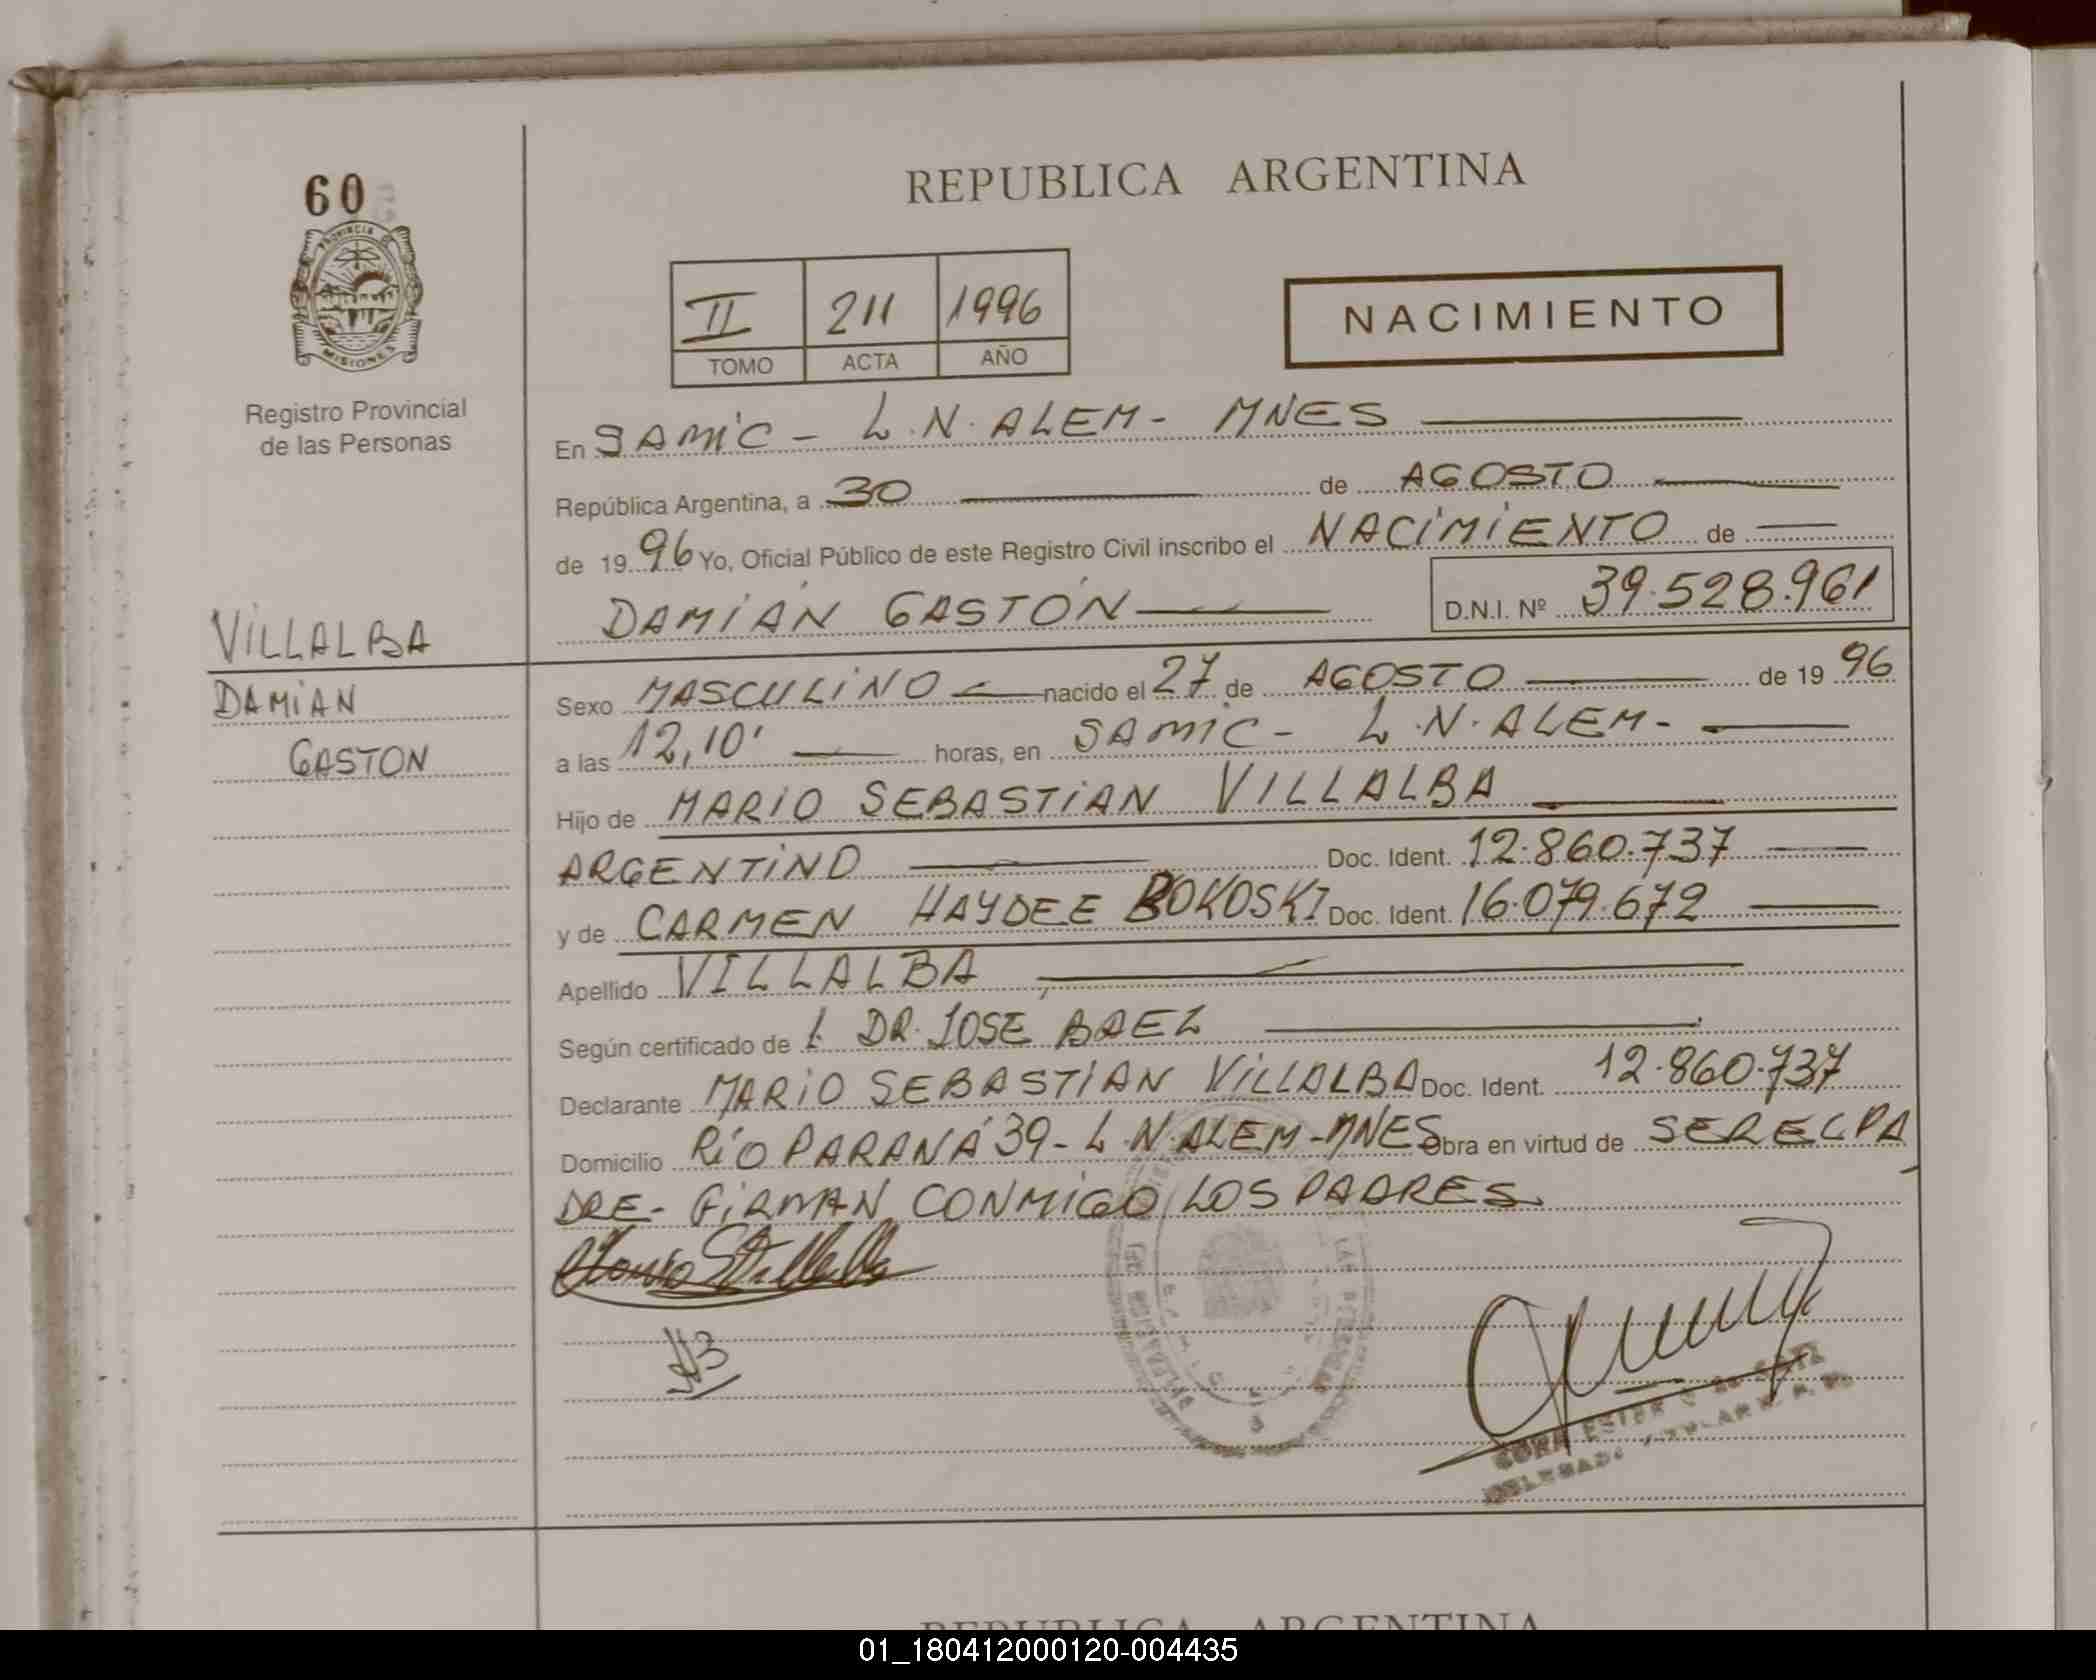 60
PROVINCIA DE
MISIONES
Registro Provincial
de las Personas
REPUBLICA ARGENTINA
II 211 1996
TOMO ACTA AÑO
NACIMIENTO
En SAMIC - L.N. ALEM - MNES
República Argentina, a 30 de AGOSTO
de 1996 Yo, Oficial Público de este Registro Civil inscribo el NACIMIENTO de
DAMIÁN GASTÓN D.N.I. Nº 39.528.961
VILLALBA
DAMIAN
GASTON
Sexo MASCULINO nacido el 27 de AGOSTO de 1996
a las 12,10' horas, en SAMIC - L.N. ALEM -
Hijo de MARIO SEBASTIAN VILLALBA
ARGENTINO Doc. Ident. 12.860.737
y de CARMEN HAYDEE BOKOSKI Doc. Ident. 16.079.672
Apellido VILLALBA
Según certificado de L DR. JOSE BAEZ
Declarante MARIO SEBASTIAN VILLALBA Doc. Ident. 12.860.737
Domicilio RÍO PARANÁ 39 - L.N. ALEM - MNES Obra en virtud de SER EL PA
DRE - FIRMAN CONMIGO LOS PADRES
REPUBLICA ARGENTINA
01_180412000120-004435